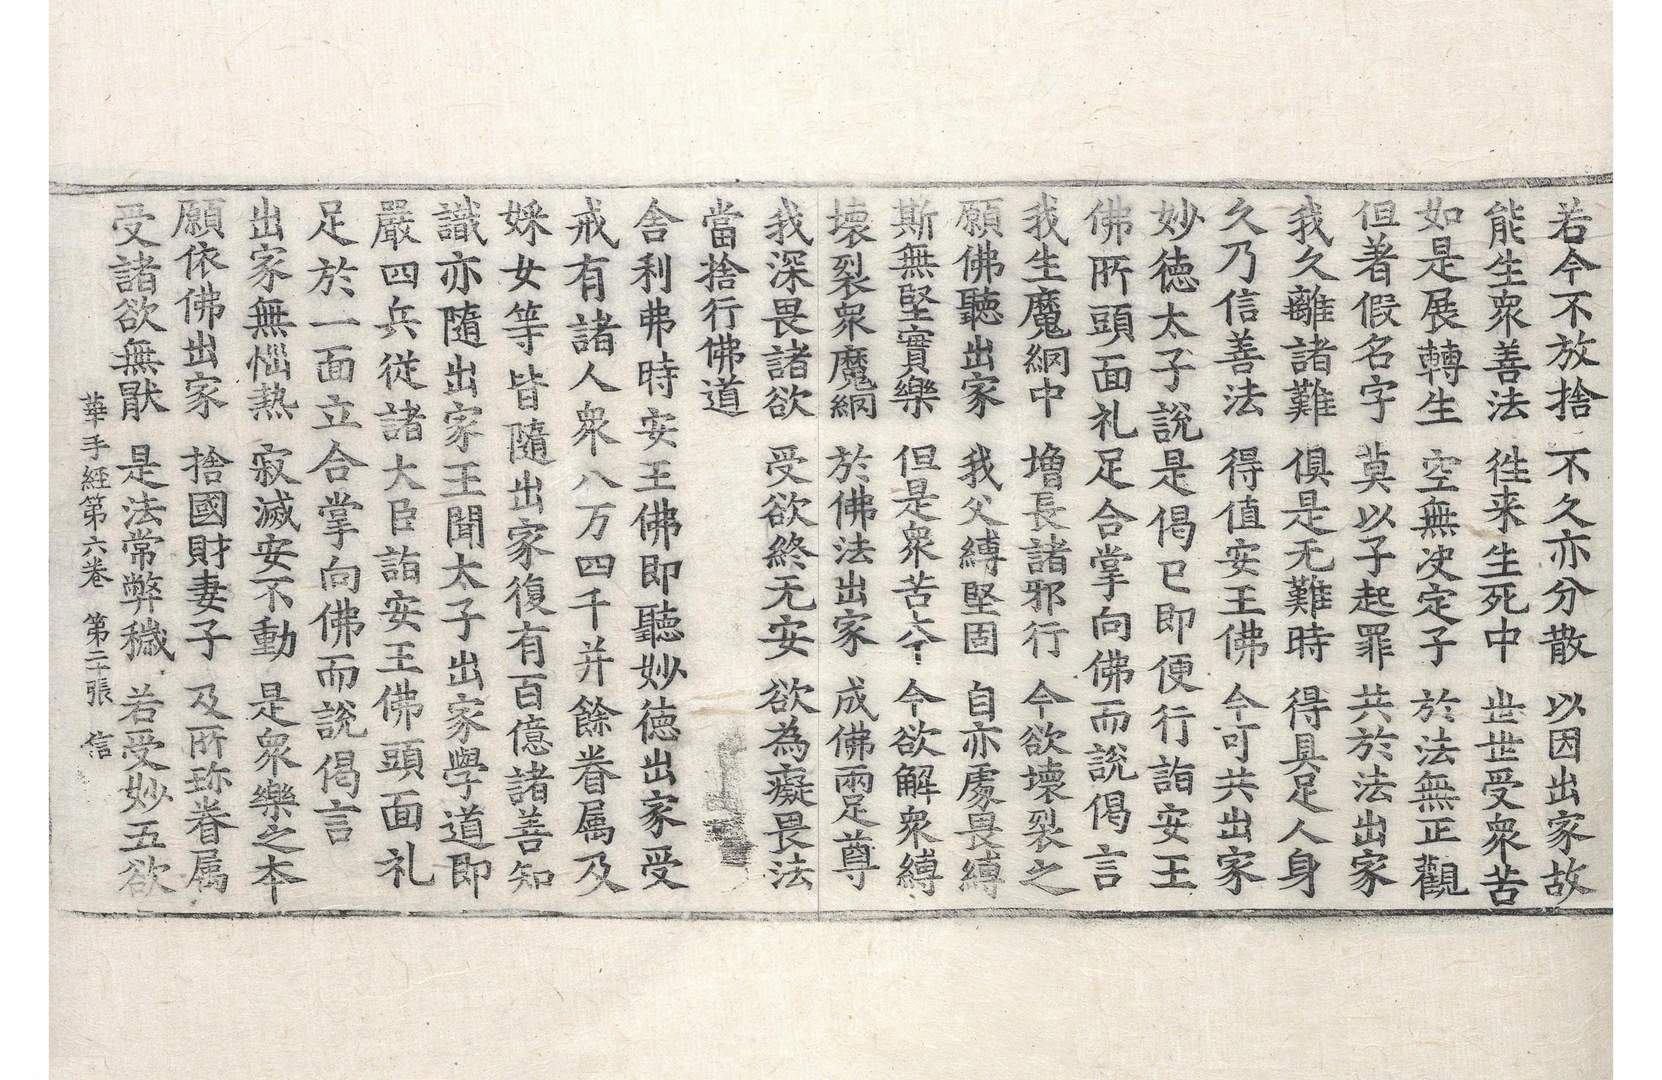 若今不放捨　不久亦分散　以因出家故
能生衆善法　徃来生死中　世世受衆苦
如是展轉生　空無决定子　於法無正觀
但著假名字　莫以子起罪　共於法出家
我久離諸難　俱是无難時　得具足人身
久乃信善法　得值安王佛　今可共出家
妙德太子說是偈已即便行詣安王
佛所頭面礼足合掌向佛而說偈言
我生魔網中　增長諸邪行　今欲壞裂之
願佛聽出家　我父縛堅固　自亦處畏縛
斯無堅實樂　但是衆苦　今欲解衆縛
壞裂衆魔網　於佛法出家　成佛兩足尊
我深畏諸欲　受欲終无安　欲為癡畏法
當捨行佛道
舍利弗時安王佛即聽妙德出家受
戒有諸人衆八万四千并餘眷屬及
婇女等皆隨出家復有百億諸善知
識亦隨出家王聞太子出家學道即
嚴四兵從諸大臣詣安王佛頭面礼
足於一面立合掌向佛而說偈言
出家無惱热　寂滅安不動　是衆樂之本
願依佛出家　捨國財妻子　及所珎眷属
受諸欲無猒　是法常弊穢　若受妙五欲
華手經第六卷　第二十張　信